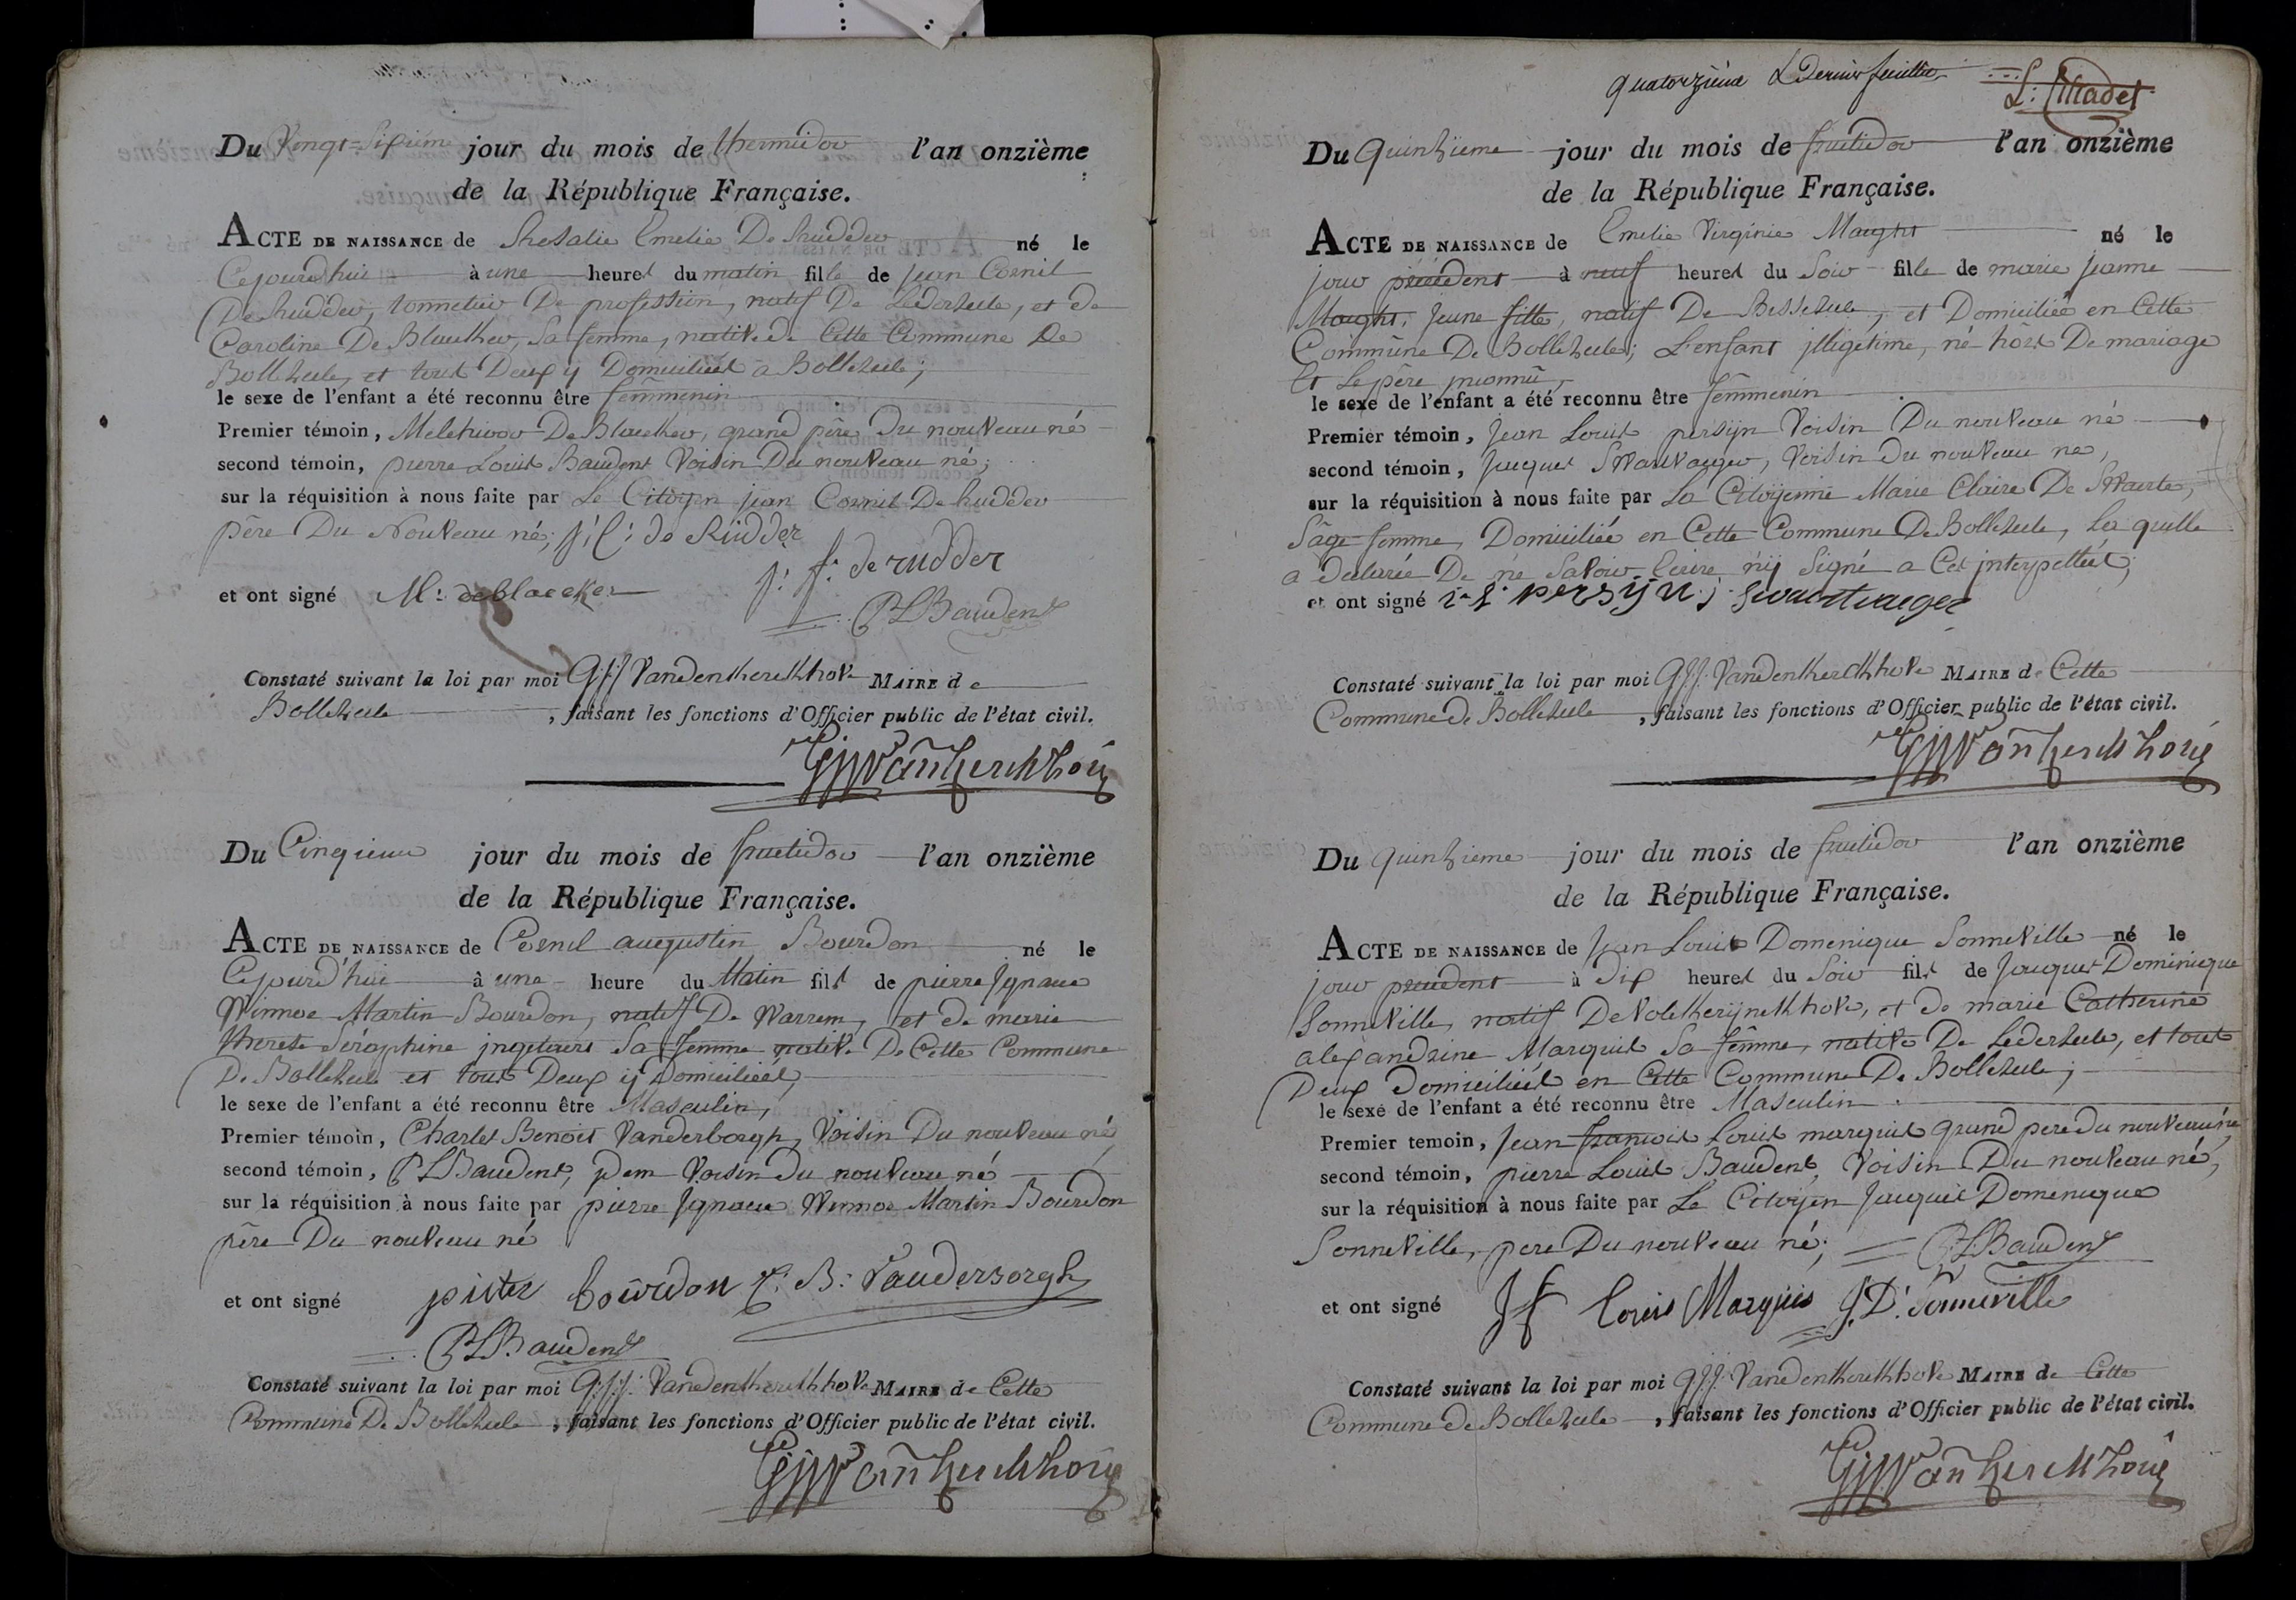 Du Vingt=Sixiéme jour du mois de thermidor l'an onzième
de la République Française.
ACTE DE NAISSANCE de Rosalie Emelie De Rudder né le
Cejourd'huis à une heures du matin fille de Jean Cornil
De Rudder, tonnelier De profession, natif De Lederzeele, et de
Caroline De Blaecker, Sa femme, native de Cette Commune De
Bollezeele, et tous Deux y Domiciliés a Bollezeele;
le sexe de l'enfant a été reconnu être femmenin
Premier témoin, Melchior De Blaecker, grand père Du nouveau né
second témoin, pierre Louis Baudens Voisin Du nouveau né;
sur la réquisition à nous faite par Le Citoyen jean Cornil De Rudder
père Du Nouveau né; j: C: de Rudder
j: f: de rudder
et ont signé M: deblaecker
PLBaudens
Constaté suivant la loi par moi GJJ Vandenkerckhove MAIRE de
Bollezeele, faisant les fonctions d'Officier public de l'état civil.
GJJVanKerckhove
Du Cinquieme jour du mois de fructidor l'an onzième
de la République Française.
ACTE DE NAISSANCE de Cornil augustin Bourdon né le
Cejourd'hui à une heure du Matin fils de pierre Ignace
Winnoc Martin Bourdon, natif De Warrem, et de marie
therese Séraphine ingelaere Sa femme native De Cette Commune
De Bollezeele et tous Deux ij Domiciliees,
le sexe de l'enfant a été reconnu être Masculin,
Premier témoin, Charles Benois Vanderborgh, Voisin Du nouveau né
second témoin, PLBaudens, idem Voisin du nouveau né
sur la réquisition à nous faite par pierre Ignace Winnoc Martin Bourdon
père Du nouveau né
et ont signé pieter bourdon C: B: Vanderborgh
PLBaudens
Constaté suivant la loi par moi G:J:J: Vandenkerckhove MAIRE de Cette
Commune De Bollezeele, faisant les fonctions d'Officier public de l'état civil.
GJJVanKerckhove
quatorzième & Dernier feuillet
Du Quinzieme jour du mois de fructidor l'an onzième
de la République Française.
ACTE DE NAISSANCE de Emelie Virginie Maeght né le
jour précédent à neuf heures du Soir fille de marie jeanne
Maeght, Jeune fille, natif De , et Domiciliée en Cette
Commune De Bollezeele; L'enfant illigetime, né hors De mariage
Et Le père inconnû,
le sexe de l'enfant a été reconnu être femmenin
Premier témoin, Jean Louis persijn Voisin Du nouveau né
second témoin, Jacques Swartvaeger, Voisin du nouveau né,
sur la réquisition à nous faite par La Citoyenne Marie Claire De Swarte,
Sâge femme, Domiciliée en Cette Commune De Bollezeele, La quelle
a declarée De né Savoir Ecrire nij Signé a Cet interpellés;
et ont signé i L persijn j swartvaeger
Constaté suivant la loi par moi GJJ. Vandenkerckhove MAIRE de Cette
Commune de Bollezeele, faisant les fonctions d'Officier public de l'état civil.
GJJVanKerckhove
Du quinzieme jour du mois de fructidor l'an onzième
de la République Française.
ACTE DE NAISSANCE de Jean Louis Domenique Sonneville né le
jour precedent à dix heures du Soir fils de Jacques Dominique
Sonneville, natif De Volckerijnckhove, et de marie Catherine
alexandrine Marquis Sa femme, native De Lederzeele, et tous
Deux Domiciliés en Cette Commune De Bollezeele;
le sexe de l'enfant a été reconnu être Masculin
Premier temoin, Jean francois Louis marquis grand pere du nouveau né
second témoin, pierre Louis Baudens Voisin Du nouveau né,
sur la réquisition à nous faite par Le Citoyen Jacques Domenique
Sonneville, pere Du nouveau né; PLBaudens
et ont signé J f Louis Marquis J. D. Sonneville
Constaté suivant la loi par moi GJJ. Vandenkerckhove MAIRE de Cette
Commune de Bollezeele, faisant les fonctions d'Officier public de l'état civil.
GJJVanKerckhove